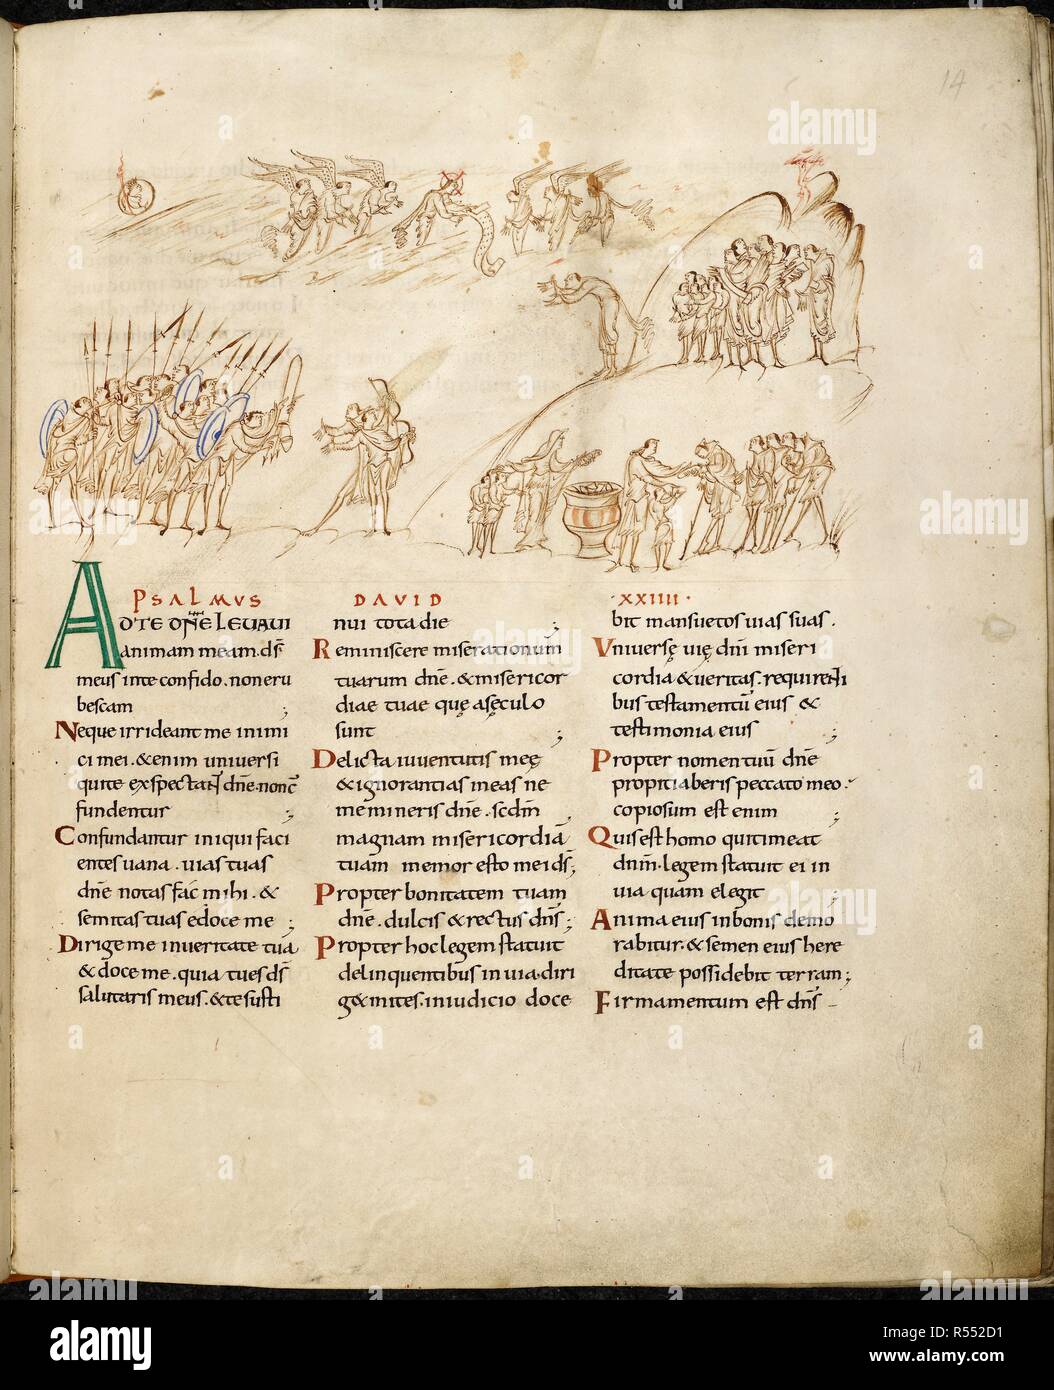 14
PSALMVS DAVID ·XXIIII·
ADTE DÑE LEUAUI
animam meam. ds̄
meus inte confido. non eru
bescam ;
Neque irrideant me inimi
ci mei. & enim universi
quite exspectant dn̄e. non c̄
fundentur ;
Confundantur iniqui faci
entes uana. uias tuas
dn̄e notas fac mihi. &
semitas tuas edoce me ;
Dirige me inueritate tua
& doce me. quia tu es ds̄
salutaris meus. & te susti
nui tota die ;
Reminiscere miserationum
tuarum dn̄e. & misericor
diae tuae quę asęculo
sunt ;
Delicta iuuentutis meę
& ignorantias meas ne
memineris dn̄e. scdm̄
magnam misericordiā
tuam memor esto mei ds̄;
Propter bonitatem tuam
dn̄e. dulcis & rectus dn̄s;
Propter hoc legem statuit
delinquentibus in uia. diri
g& mites. in iudicio doce
bit mansuetos uias suas.
Vniuersę uię dn̄i miseri
cordia & ueritas. requirenti
bus testamentū eius &
testimonia eius ;
Propter nomen tuū dn̄e
propitiaberis peccato meo.
copiosum est enim ;
Quis est homo qui timeat
dnm̄. legem statuit ei in
uia quam elegit ;
Anima eius in bonis demo
rabitur. & semen eius here
ditate possidebit terram;
Firmamentum est dn̄s
alamy
alamy
Image ID: R552D1
www.alamy.com